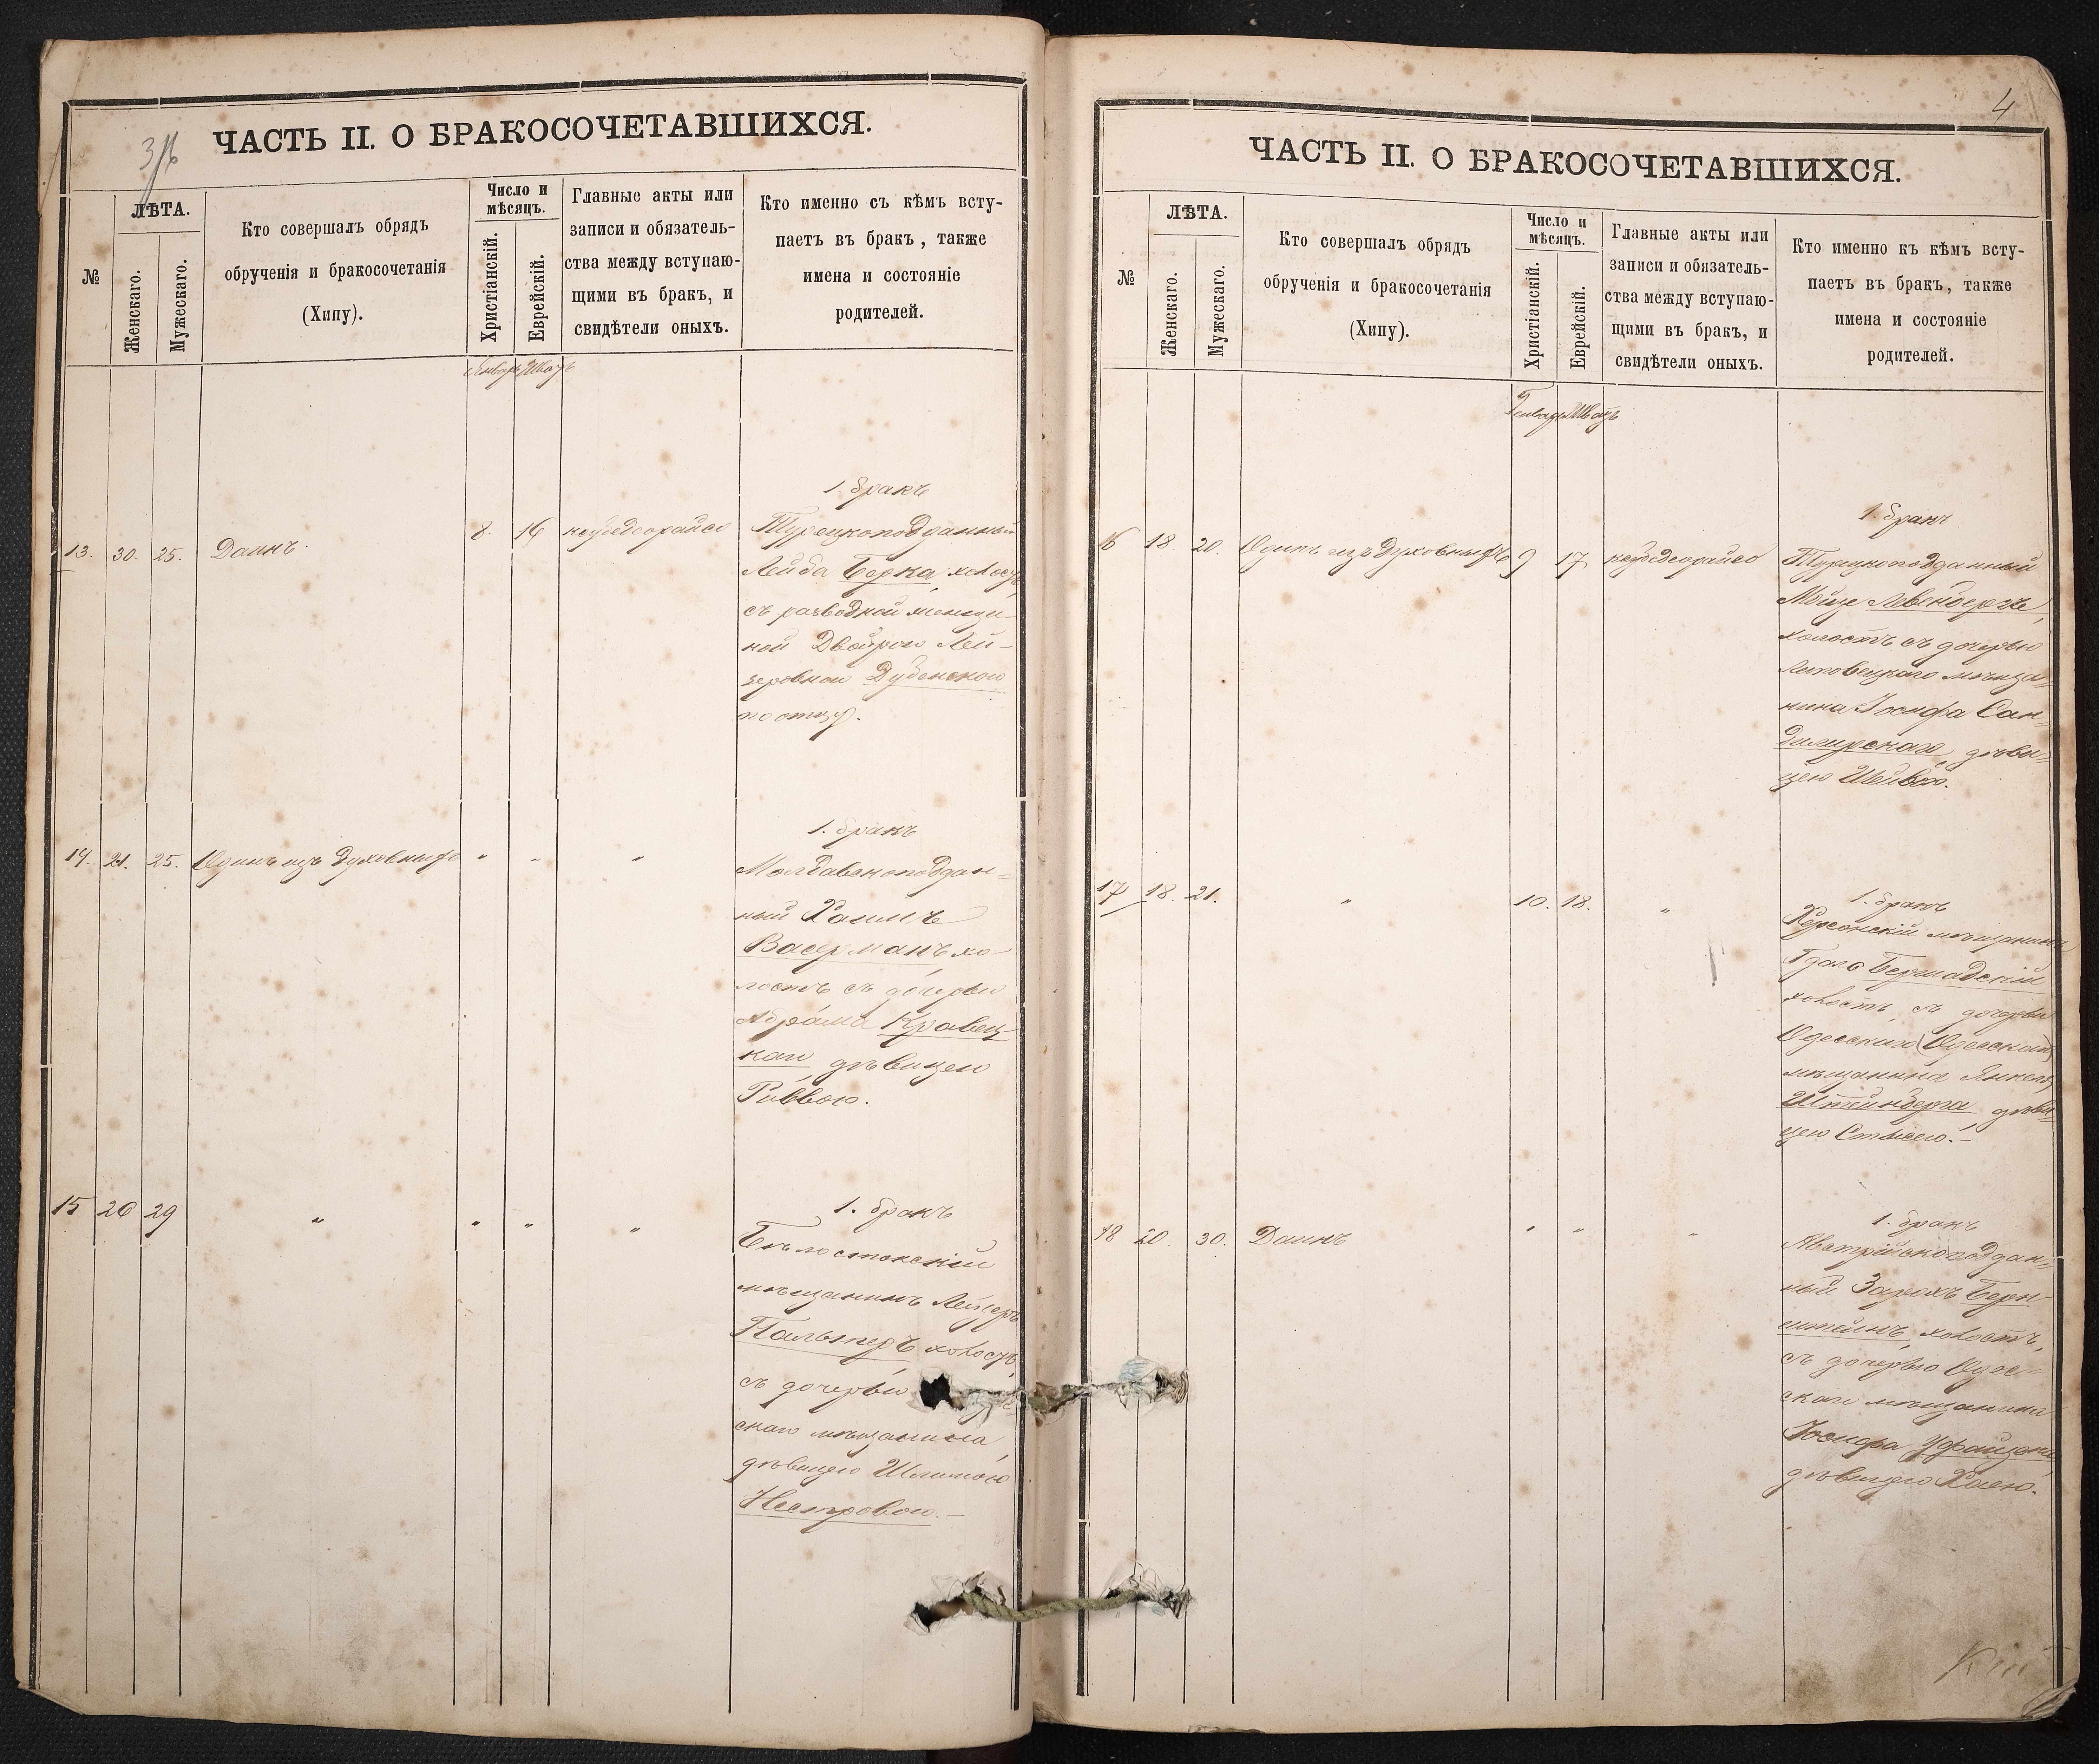 ЧАСТЬ II. О БРАКОСОЧЕТАВШИХСЯ.
№
ЛѢТА.
Женскаго.
Мужескаго.
Кто совершалъ обрядъ
обрученія и бракосочетанія
(Хипу).
Число и
мѣсяцъ.
Христіанскій.
Еврейскій.
Главные акты или
записи и обязатель-
ства между вступаю-
щими въ бракъ, и
свидѣтели оныхъ.
Кто именно съ кѣмъ всту-
паетъ въ бракъ, также
имена и состояніе
родителей.
Январь Шватъ
13. 30. 25. Даинъ. 8. 16
1. бракъ
Турецкоподданный
Лейба Берка, холостъ,
съ разводной женщи-
ной Двойрою Лей-
зеровною Дубенскою
по отцу.
14. 21. 25. Одинъ изъ Духовныхъ " " "
1. бракъ
Молдавскоподдан=
ный Хаимъ
Васерманъ хо-
лостъ съ дочерью
Абрама Кравец-
каго дѣвицею
Риввою.
15 26 29 " " " "
1. бракъ
Бѣлостокскій
мѣщанинъ Лейзеръ
холостъ,
съ дочерью
скаго мѣщанина
дѣвицею
4
ЧАСТЬ II. О БРАКОСОЧЕТАВШИХСЯ.
№
ЛѢТА.
Женскаго.
Мужескаго.
Кто совершалъ обрядъ
обрученія и бракосочетанія
(Хипу).
Число и
мѣсяцъ.
Христіанскій.
Еврейскій.
Главные акты или
записи и обязатель-
ства между вступаю-
щими въ бракъ, и
свидѣтели оныхъ.
Кто именно къ кѣмъ всту-
паетъ въ бракъ, также
имена и состояніе
родителей.
Генварь Шватъ
16 18. 20. Одинъ изъ Духовныхъ 9 17
1. бракъ
Турецкоподданный
холостъ съ дочерью
Липовецкаго мѣща=
нина Іосифа Сан=
дѣви=
цею Шейвою.
17 18. 21. " 10. 18. "
1. бракъ
Херсонскій мѣщанинъ
Бершадскій
холостъ, съ дочерью
Одесскаго (Одесскаго)
мѣщанина Янкеля
Штейнберга дѣви=
цею
18 20. 30. Даинъ " " "
1. бракъ
Австрійскоподдан=
ный Зарихъ Берн-
штейнъ, холостъ,
съ дочерью Одес-
скаго мѣщанина
Іосифа
дѣвицею Хаею.